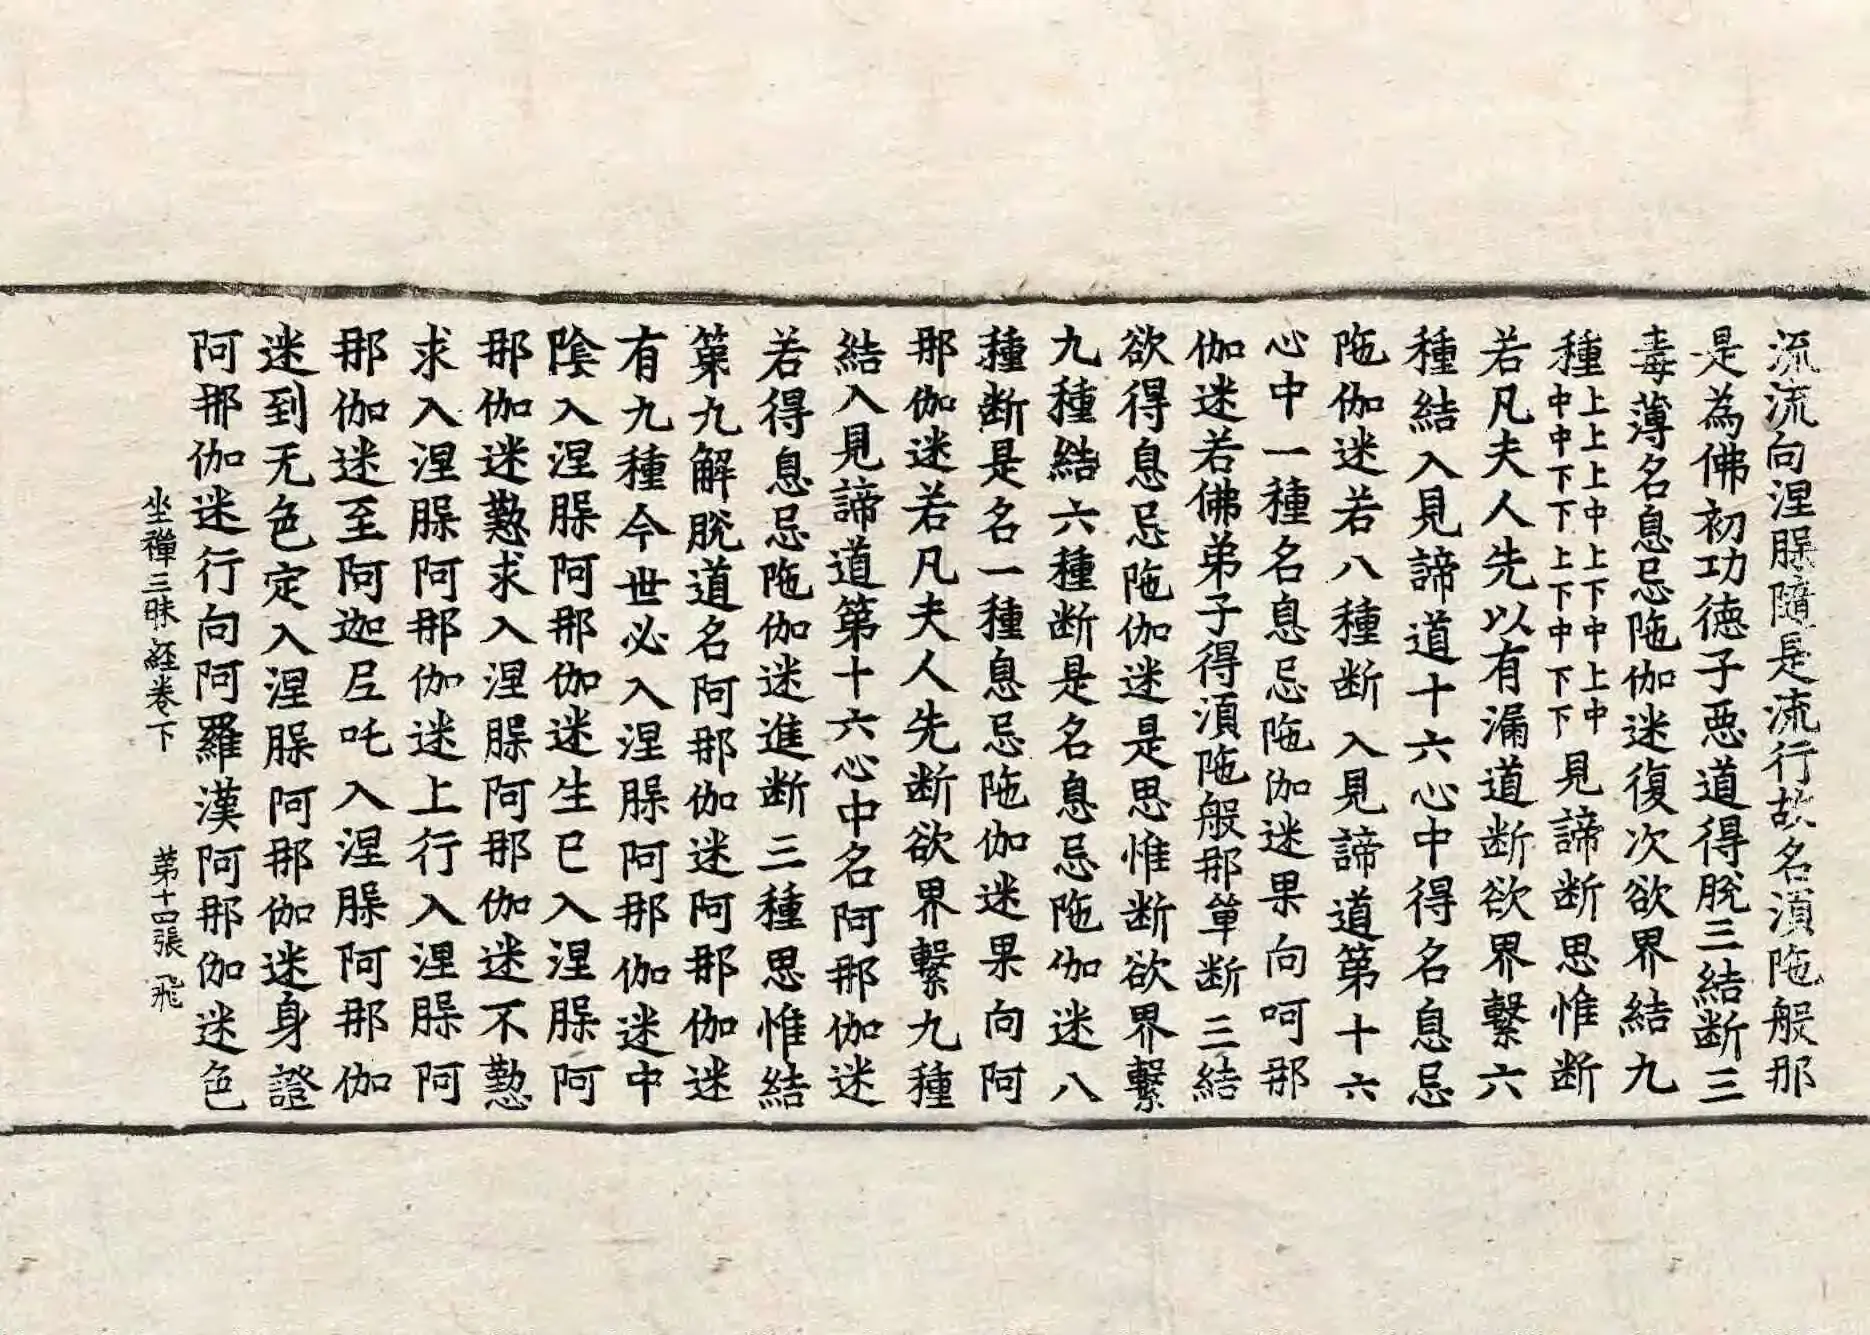 流流向涅䐉隨是流行故名湏陁般那
是為佛初功徳子惡道得脫三結断三
毒薄名息忌陁伽迷復次欲界結九
種上上上中上下中上中中中下下上下中下下見諦断思惟断
若凡夫人先以有漏道断欲界繫六
種結入見諦道十六心中得名息忌
陁伽迷若八種断入見諦道第十六
心中一種名息忌陁伽迷果向呵那
伽迷若佛弟子得湏陁般那單断三結
欲得息忌陁伽迷是思惟断欲界繫
九種結六種断是名息忌陁伽迷八
種断是名一種息忌陁伽迷果向阿
那伽迷若凡夫人先断欲界繫九種
結入見諦道第十六心中名阿那伽迷
若得息忌陁伽迷進断三種思惟結
第九解脫道名阿那伽迷阿那伽迷
有九種今世必入涅䐉阿那伽迷中
陰入涅䐉阿那伽迷生已入涅䐉阿
那伽迷懃求入涅䐉阿那伽迷不懃
求入涅䐉阿那伽迷上行入涅䐉阿
那伽迷至阿迦尼吒入涅䐉阿那伽
迷到无色定入涅䐉阿那伽迷身證
阿那伽迷行向阿羅漢阿那伽迷色
坐禪三昧経卷下 第十四張 飛